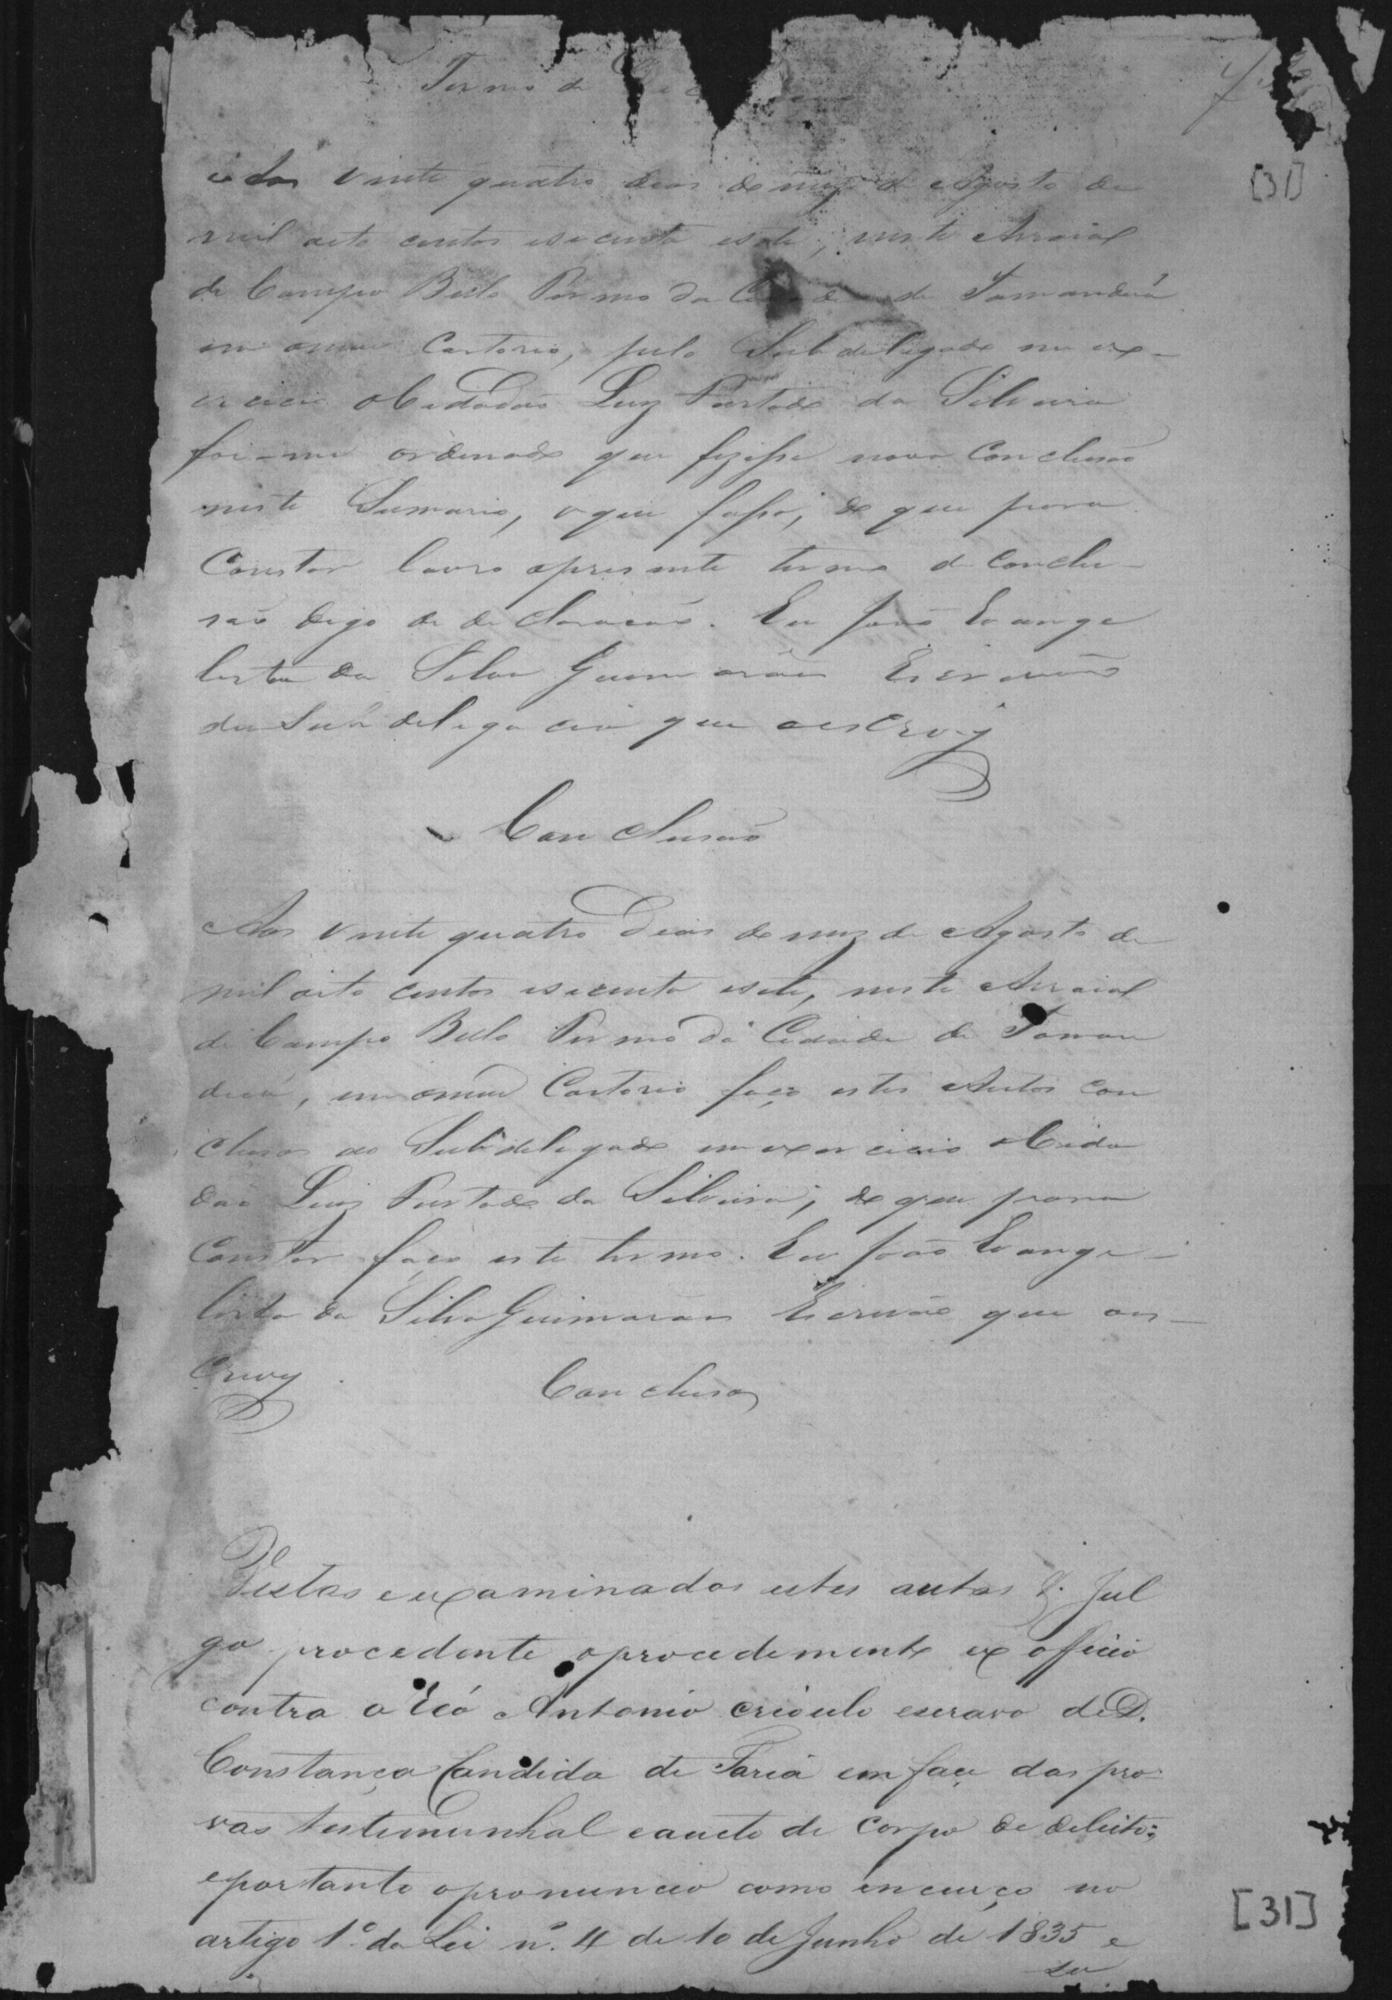 Termo de
[31]
Aos vinte quatro dias do mez de Agosto de
mil oito centos esecenta esete, neste Arraial
de Campo Bello Termo da Cidade de Tamanduá
em omeu Cartorio, pelo Subdelegado em ex-
ercicio oCidadão Luiz Furtado da Silveira
foi-me ordenado que fizesse nova Conclusão
neste Sumario, oque fasso, do que para
Constar lavro opresente termo de conclu-
são digo de declaração. Eu João Evange
lista da Silva Guimarães Escrivão
da Subdelegacia que oescrevy
Conclusão
Aos vinte quatro dias do mez de Agosto de
mil oito centos esecenta esete, neste Arraial
de Campo Bello Termo da Cidade de Taman
duá, em omeu Cartorio faço estes Autos con
clusos ao Subdelegado em exercicio oCida
dão Luiz Furtado da Silveira, do que para
Constar faço este termo. Eu João Evange-
lista da Silva Guimarães Escrivão que oes-
crevy
Conclusos
Vistos e examinados estes autos &. Jul
go procedente oprocedimento ex officio
contra o Reó Antonio crioulo escravo de D.
Constança Candida de Faria em face das pro-
vas testemunhal eaucto de corpo de delicto:
eportanto opronuncio como incurço no
artigo 1º da Lei nº 4 de 10 de Junho de 1835 e
[31]